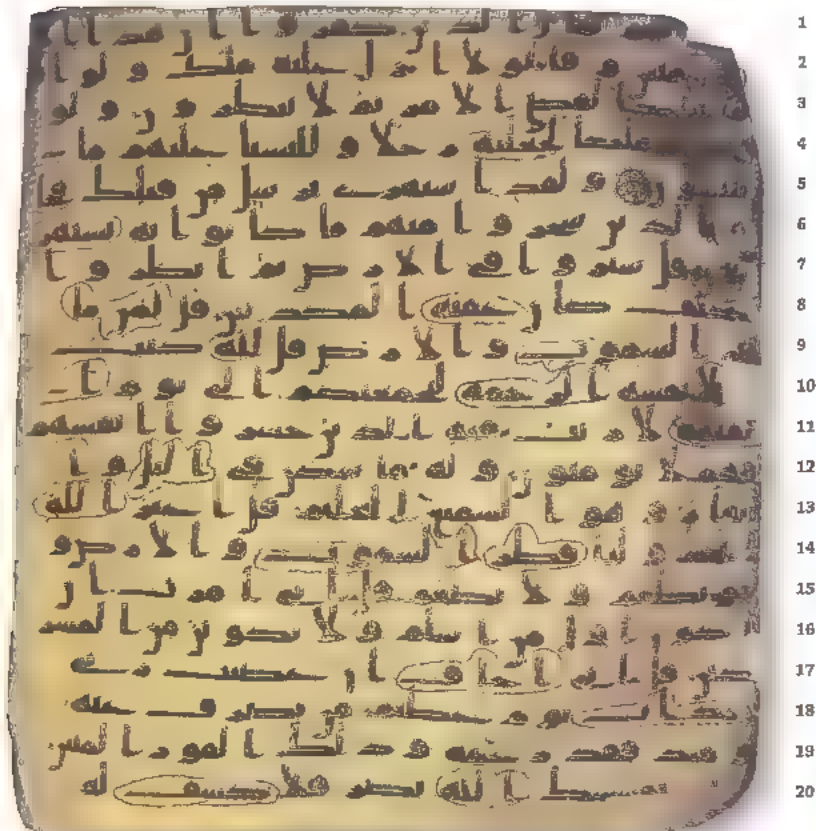 الذين كفروا ان هذا ا 1
سحر مبين وقالوا لولا انزل عليه ملك ولو ا 2
لقضي الامر ثم لا ينظرون ولو 3
ملكا لجعلنه رجلا وللبسنا عليهم ما ي 4
لبسون ولقد استهزى برسل من قبلك فحا 5
ق بالذين سخروا منهم ما كانوا به يستهز 6
ون قل سيروا في الارض ثم انظروا 7
كيف كان عقبه المكذبين قل لمن ما 8
في السموت والارض قل لله كتب 9
على نفسه الرحمه ليجمعنكم الى يوم ا 10
لقيمه لا ريب فيه الذين خسروا انفسهم 11
فهم لا يومنون وله ما سكن في اليل وا 12
لنهار وهو السميع العليم قل اغير الله 13
اتخذ وليا فطر السموت والارض و 14
هو يطعم ولا يطعم قل اني امرت ان 15
اكون اول من اسلم ولا تكونن من المشر 16
كين قل اني اخاف ان عصيت ربي 17
عذاب يوم عظيم من يصرف عنه 18
يومئذ فقد رحمه وذلك الفوز المبين 19
يمسسك الله بضر فلا كاشف له 20